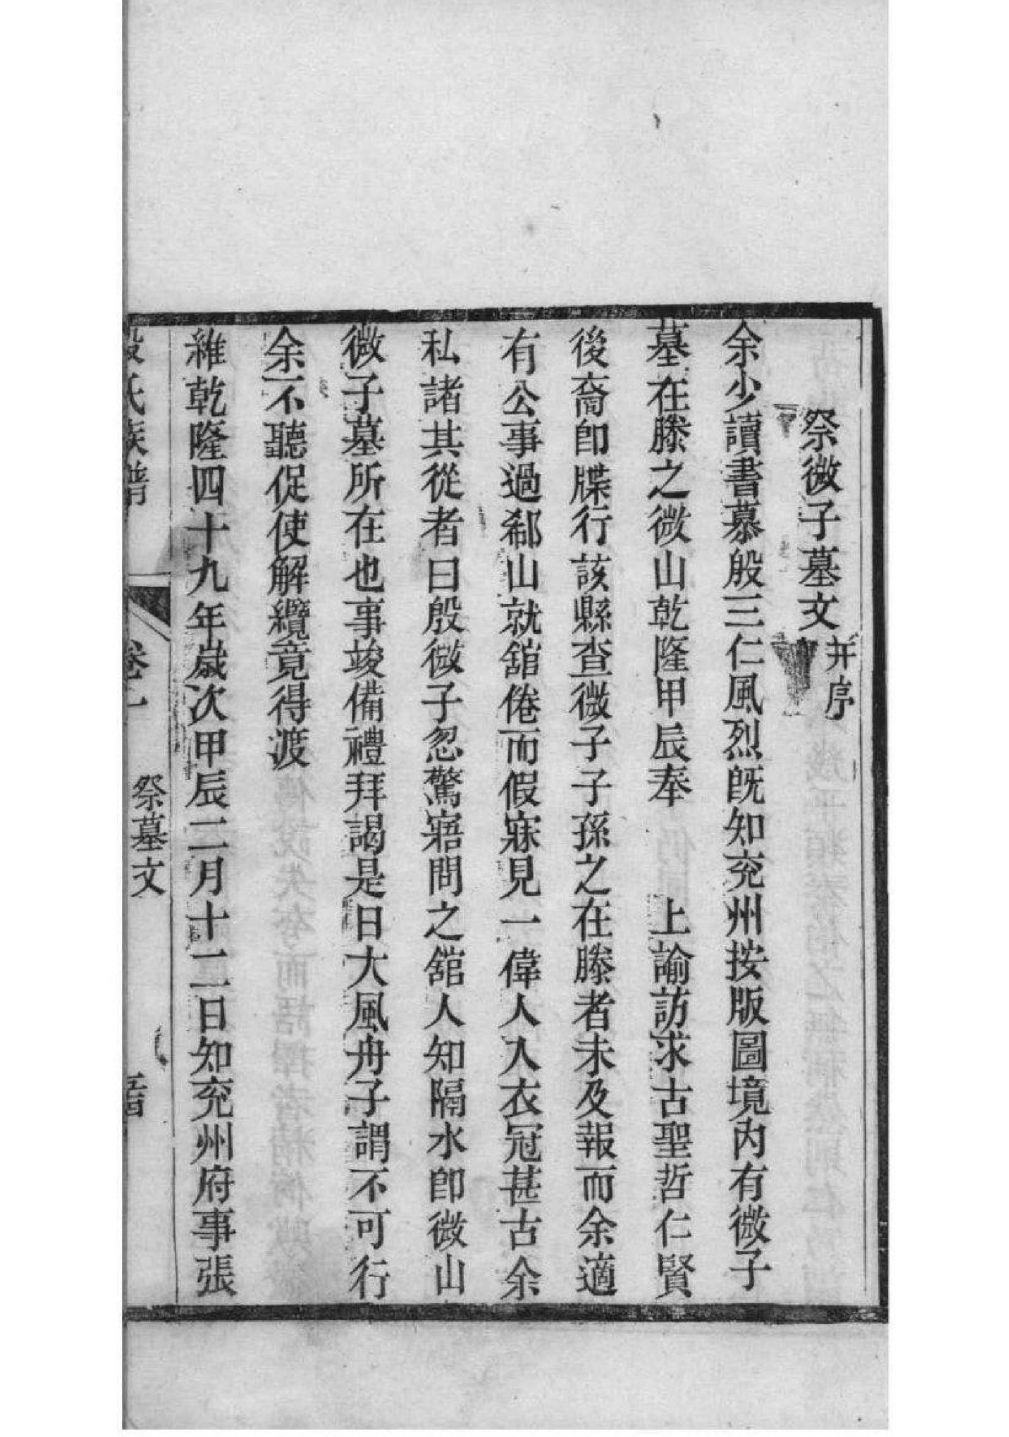 祭微子墓文并序
余少讀書慕殷三仁風烈旣知兖州按版圖境內有微子
墓在滕之微山乾隆甲辰奉 上諭訪求古聖哲仁賢
後裔卽牒行該縣查微子子孫之在滕者未及報而余適
有公事過郗山就舘倦而假寐見一偉人入衣冠甚古余
私諸其從者曰殷微子忽驚寤問之舘人知隔水卽微山
微子墓所在也事竣備禮拜謁是日大風舟子謂不可行
余不聽促使解纜竟得渡
維乾隆四十九年歲次甲辰二月十二日知兖州府事張
氏族譜
卷
祭墓文